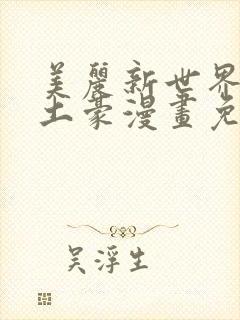 美麗新世界
土豪漫畫免
吴浮生